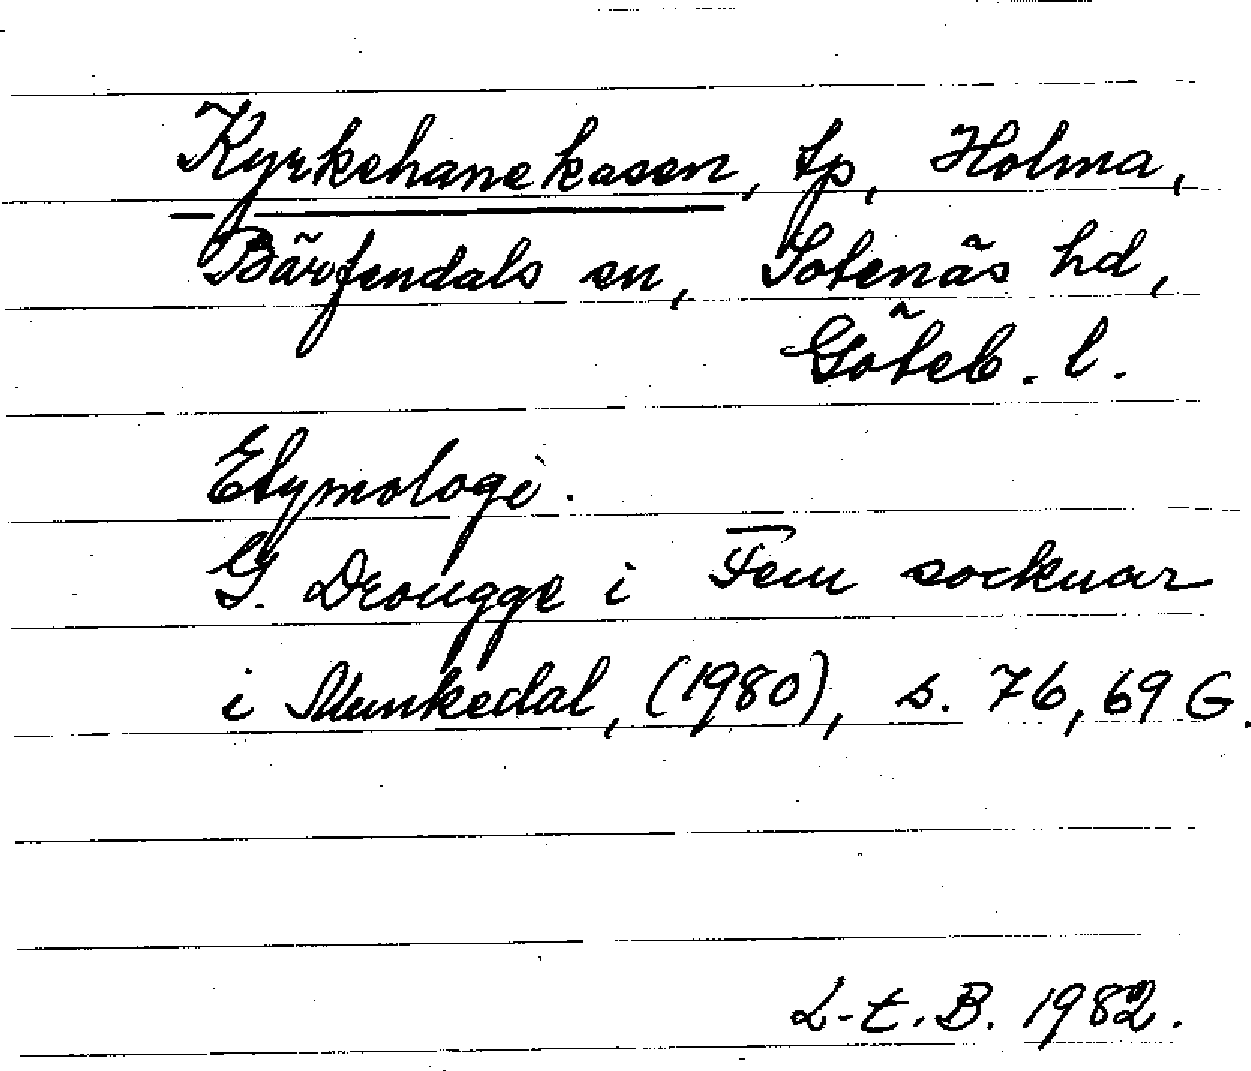 Kyrkehanekasen, tp, Holma,
Bärfendals sn, Sotenäs hd,
Göteb. l.
Etymologi.
G. Drougge i Fem socknar
i Munkedal, (1980), s. 76, 69 G.
L-t. B. 1982.